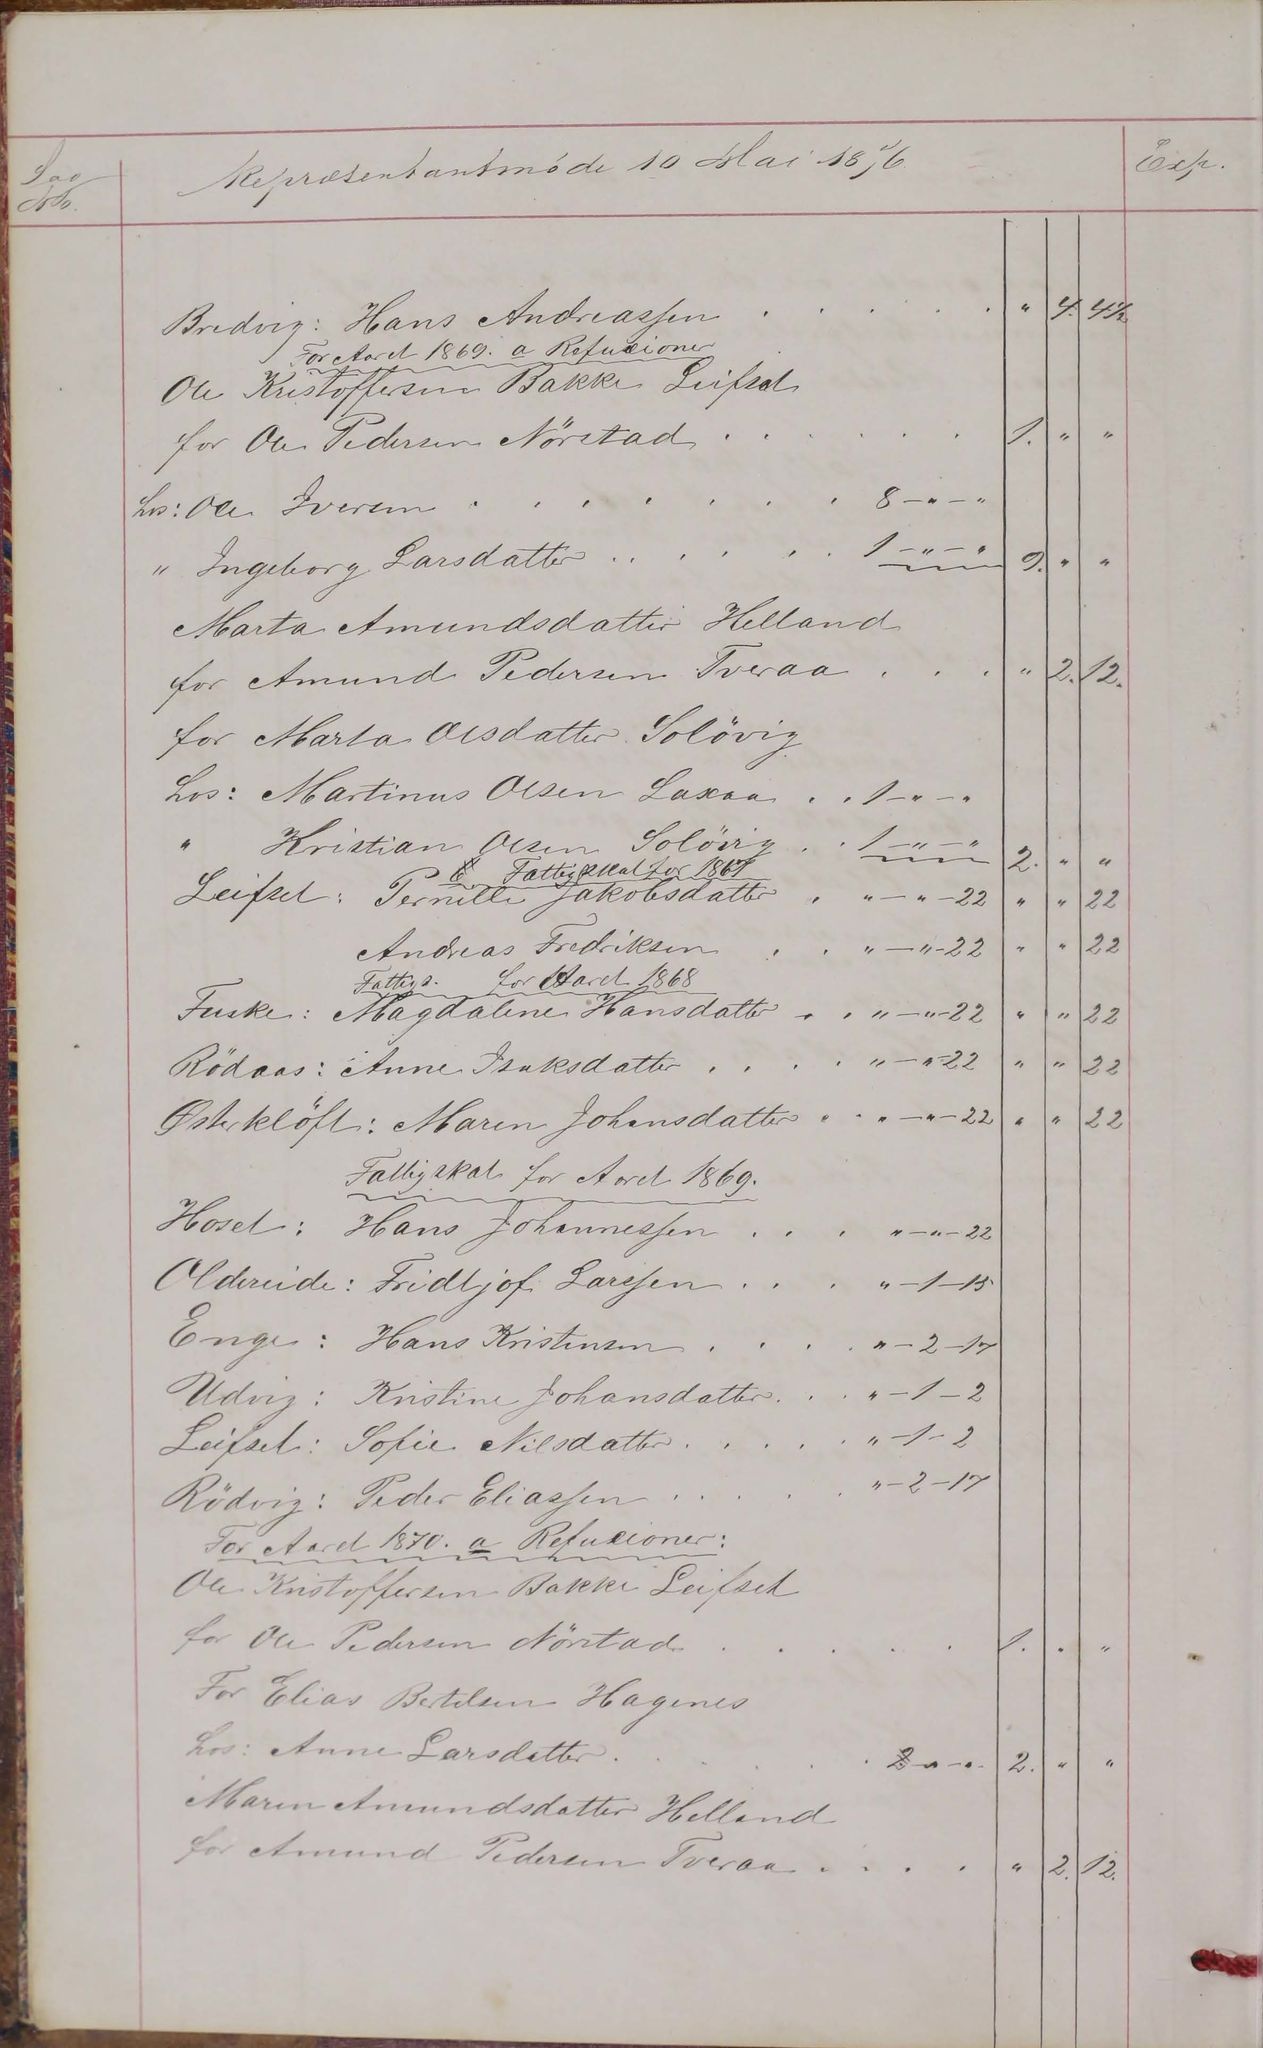 Sag
No.
Repræsentantmøde 10 Mai 1876
Exp.
Bredvig: Hans Andreassen . . . . . " 4. 4½
For Aaret 1869. a Refusioner
Ole Kristoffersen Bakke Leifset
for Ole Pedersen Nörstad . . . . . . 1. " "
hos: Ole Iversen . . . . . . . 8 - " - "
" Ingeborg Larsdatter . . . . . 1 - " - " 9. " "
Marta Amundsdatter Helland
for Amund Pedersen Tveraa . . . " 2. 12.
for Marta Olsdatter Solövig
hos: Martinus Olsen Laxaa . . 1 - " - "
" Kristian Olsen Solövig . . 1 - " - " 2. " "
b Fattigskat for 1867
Leifset: Pernille Jakobsdatter . " - " - 22 " " 22
Andreas Fredriksen . . " - " - 22 " " 22
Fattigs. for Aaret 1868
Fuske: Magdalene Hansdatter . . " - " - 22 " " 22
Rödaas: Anne Isaksdatter . . . . " - " - 22 " " 22
Østerklöft: Maren Johansdatter . . " - " - 22 " " 22
Fattigskat for Aaret 1869.
Hoset: Hans Johannessen . . . " - " - 22
Oldereide: Fridtjof Larssen . . . " - 1 - 15
Enge: Hans Kristensen . . . . " - 2 - 17
Udvig: Kristine Johansdatter . . . " - 1 - 2
Leifset: Sofie Nilsdatter . . . . . " - 1 - 2
Rödvig: Peder Eliassen . . . . . " - 2 - 17
For Aaret 1870. a Refusioner:
Ole Kristoffersen Bakke Leifset
for Ole Pedersen Nörstad . . . . . 1. " "
For Elias Bertelsen Hagenes
hos: Anne Larsdatter . . . . 2 - " - " 2. " "
Maren Amundsdatter Helland
for Amund Pedersen Tveraa . . . . " 2. 12.